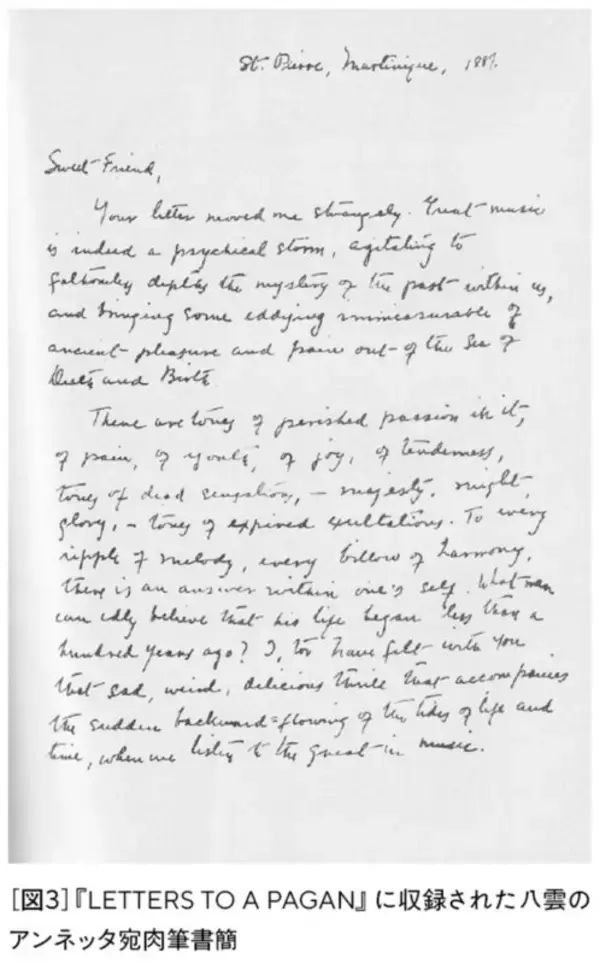 St. Pierre, Martinique, 1887.
Sweet Friend,
Your letter moved me strangely. Great music
is indeed a psychical storm, agitating to
fathomless depths the mystery of the past within us,
and bringing some eddying immeasurable of
ancient pleasure and pain out of the Sea of
Death and Birth.
There are tones of perished passion in it,
of pain, of youth, of joy, of tenderness,
tones of dead sensations, – majesty, might,
glory, – tones of expired exultations. To every
ripple of melody, every billow of harmony,
there is an answer within one's self. What man
can idly believe that his life began less than a
hundred years ago? I, too have felt with you
that sad, weird, delicious thrill that accompanies
the sudden backward=flowing of the tides of life and
time, when we listen to the great in music.
[図3]『LETTERS TO A PAGAN』に収録された八雲の
アンネッタ宛肉筆書簡